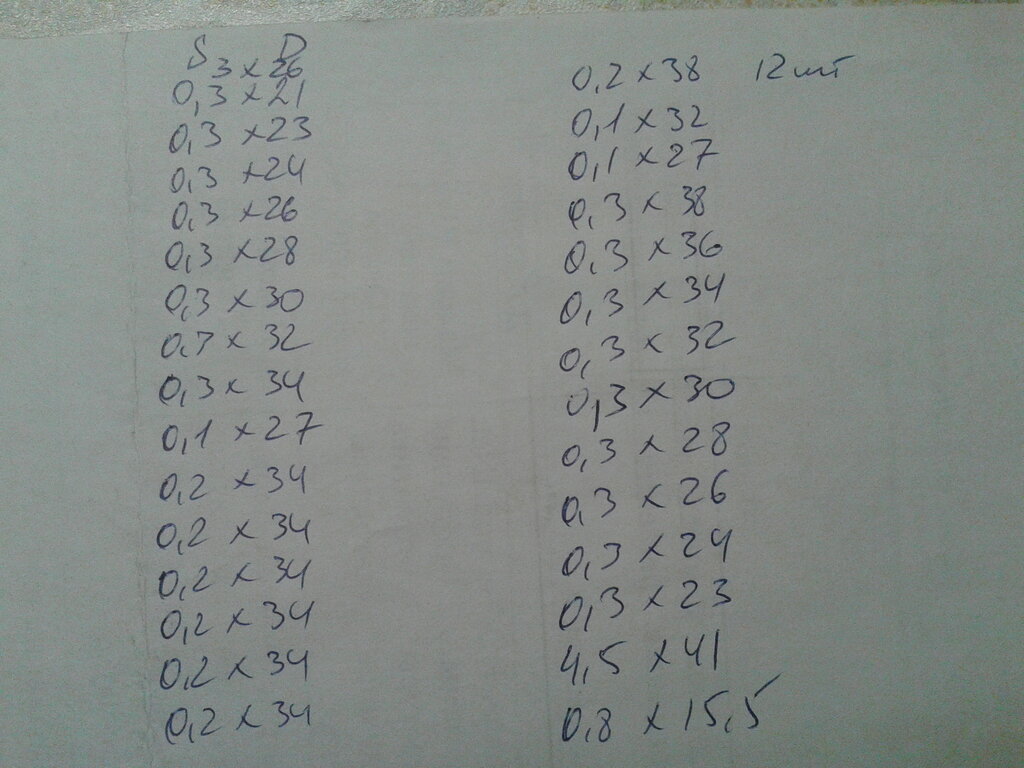 S D
3 x 26
0,3 x 21
0,3 x 23
0,3 x 24
0,3 x 26
0,3 x 28
0,3 x 30
0,3 x 32
0,3 x 34
0,1 x 27
0,2 x 34
0,2 x 34
0,2 x 34
0,2 x 34
0,2 x 34
0,2 x 34
0,2 x 38 12 шт
0,1 x 32
0,1 x 27
0,3 x 38
0,3 x 36
0,3 x 34
0,3 x 32
0,3 x 30
0,3 x 28
0,3 x 26
0,3 x 24
0,3 x 23
4,5 x 41
0,8 x 15,5